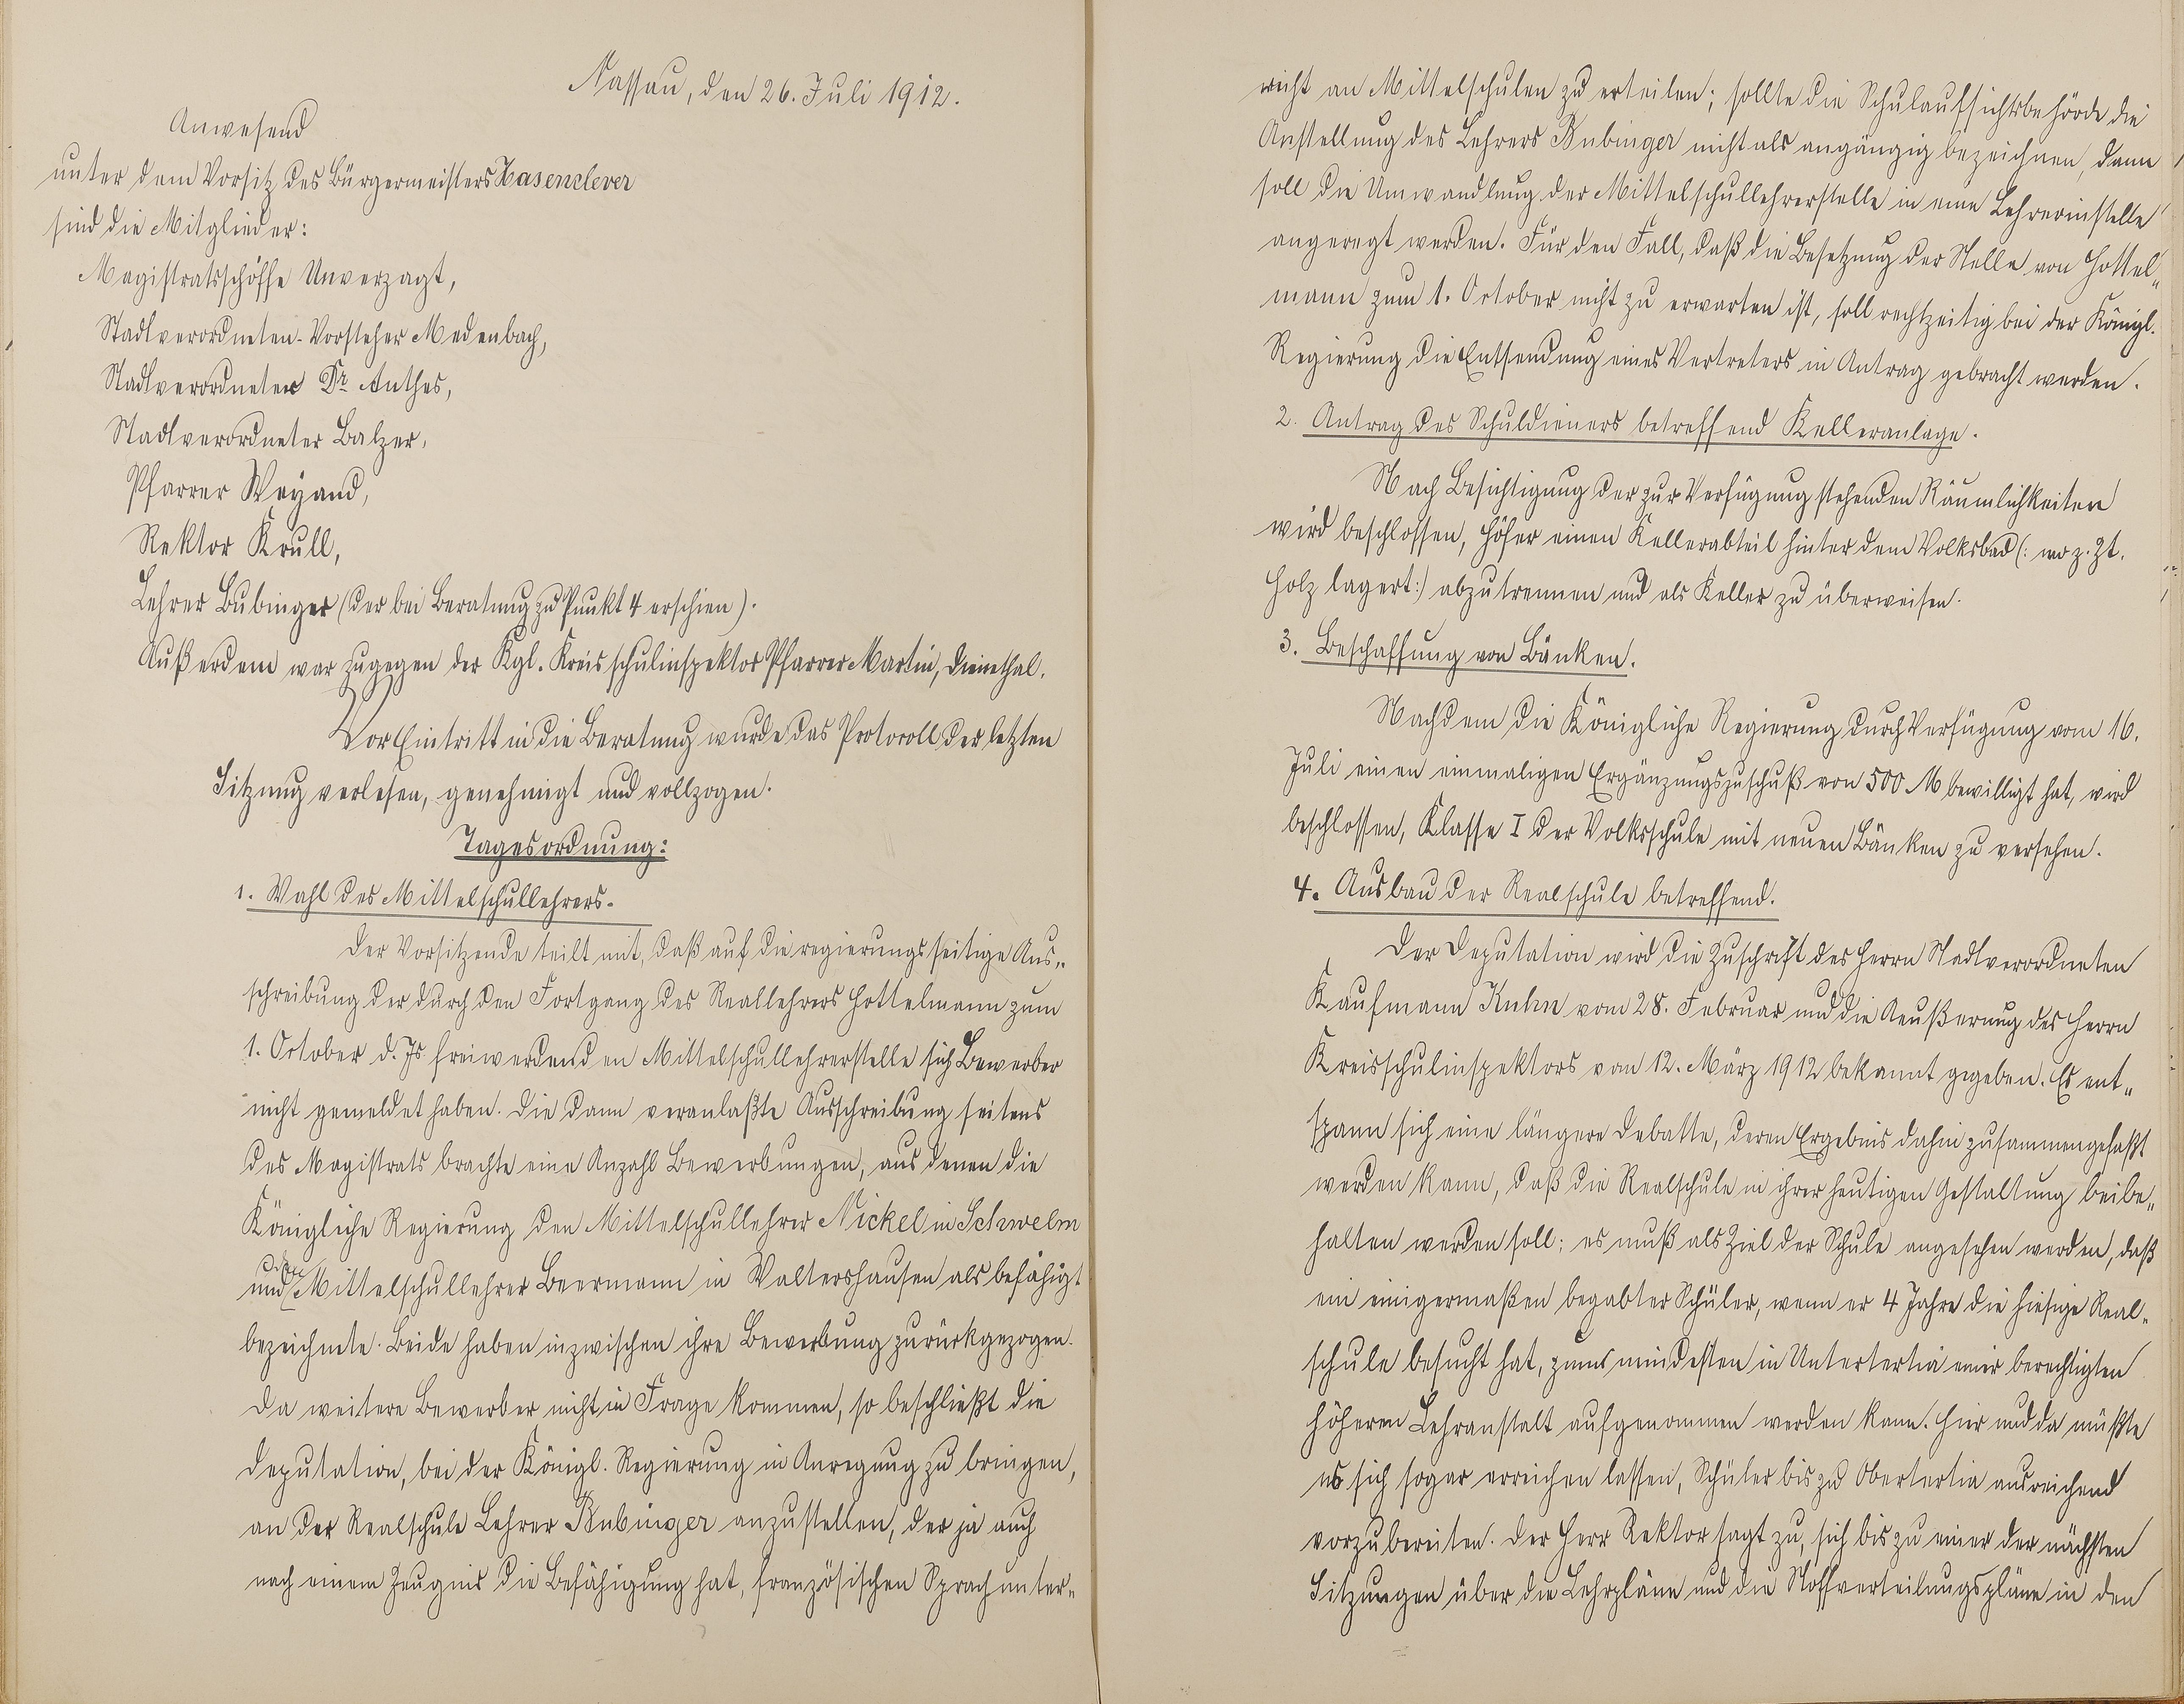 Nassau, den 26. Juli 1912.
Anwesend
unter dem Vorsitz des Bürgermeisters Hasenclever
sind die Mitglieder:
Magistratsschöffe Unverzagt,
Stadtverordneten-Vorsteher Medenbach,
Stadtverordneter Dr. Anthes,
Stadtverordneter Balzer,
Pfarrer Weyand,
Rektor Krull,
Lehrer Bubinger (der bei Beratung zu Punkt 4 erschien).
Außerdem war zugegen der Kgl. Kreisschulinspektor Pfarrer Martin, Dienethal.
Vor Eintritt in die Beratung wurde das Protocoll der letzten
Sitzung verlesen, genehmigt und vollzogen.
Tagesordnung:
1. Wahl des Mittelschullehrers.
Der Vorsitzende teilt mit, daß auf die regierungsseitige Aus„
schreibung der durch den Fortgang des Reallehrers Hottelmann zum
1. October d. Js freiwerdenden Mittelschullehrerstelle sich Bewerber
nicht gemeldet haben. Die dann veranlaßte Ausschreibung seitens
des Magistrats brachte eine Anzahl Bewerbungen, aus denen die
Königliche Regierung den Mittelschullehrer Nickel in Schwelm
und den Mittelschullehrer Beermann in Waltershausen als befähigt
bezeichnete. Beide haben inzwischen ihre Bewerbung zurückgezogen.
Da weitere Bewerber nicht in Frage kommen, so beschließt die
Deputation, bei der Königl. Regierung in Anregung zu bringen,
an der Realschule Lehrer Bubinger anzustellen, der ja auch
nach einem Zeugnis die Befähigung hat, französischen Sprachunter„
richt an Mittelschulen zu erteilen; sollte die Schulaufsichtsbehörde die
Anstellung des Lehrers Bubinger nicht als angängig bezeichnen, dann
soll die Umwandlung der Mittelschullehrerstelle in eine Lehrerinstelle
angeregt werden. Für den Fall, daß die Besetzung der Stelle von Hottel„
mann zum 1. October nicht zu erwarten ist, soll rechtzeitig bei der Königl.
Regierung die Entsendung eines Vertreters in Antrag gebracht werden.
2. Antrag des Schuldieners betreffend Kelleranlage.
Nach Besichtigung der zur Verfügung stehenden Räumlichkeiten
wird beschlossen, Höfer einen Kellerabteil hinter dem Volksbad (: wo z. Zt.
Holz lagert:) abzutrennen und als Keller zu überweisen.
3. Beschaffung von Bänken.
Nachdem die Königliche Regierung durch Verfügung vom 16.
Juli einen einmaligen Ergänzungszuschuß von 500 M bewilligt hat, wird
beschlossen, Klasse I der Volksschule mit neuen Bänken zu versehen.
4. Ausbau der Realschule betreffend.
Der Deputation wird die Zuschrift des Herrn Stadtverordneten
Kaufmann Kuhn vom 28. Februar und die Aeußerung des Herrn
Kreisschulinspektors vom 12. März 1912 bekannt gegeben. Es ent„
spann sich eine längere Debatte, deren Ergebnis dahin zusammengefaßt
werden kann, daß die Realschule in ihrer heutigen Gestaltung beibe„
halten werden soll; es muß als Ziel der Schule angesehen werden, daß
ein einigermaßen begabter Schüler, wenn er 4 Jahre die hiesige Real„
schule besucht hat, zum mindesten in Untertertia einer berechtigten
höheren Lehranstalt aufgenommen werden kann. Hier und da müßte
es sich sogar erreichen lassen, Schüler bis zu Obertertia ausreichend
vorzubereiten. Der Herr Rektor sagt zu, sich bis zu einer der nächsten
Sitzungen über die Lehrpläne und die Stoffverteilungspläne in den